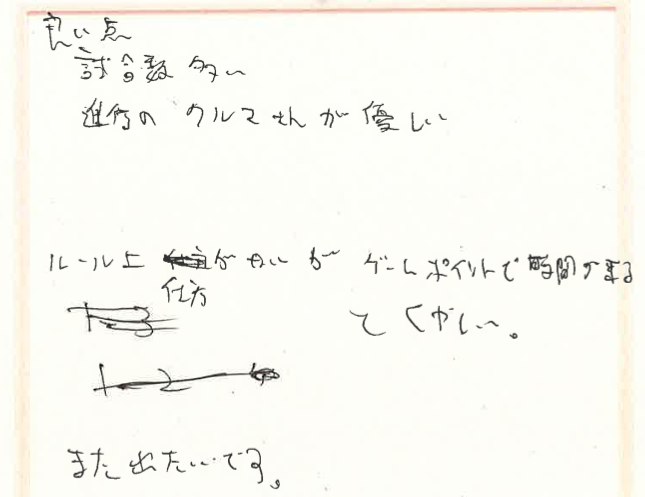 良い点
試合数 多い
進行の クルマさんが優しい
ルール上 仕方がないが ゲームポイントで時間が来る
とくやしい。
また出たいです。